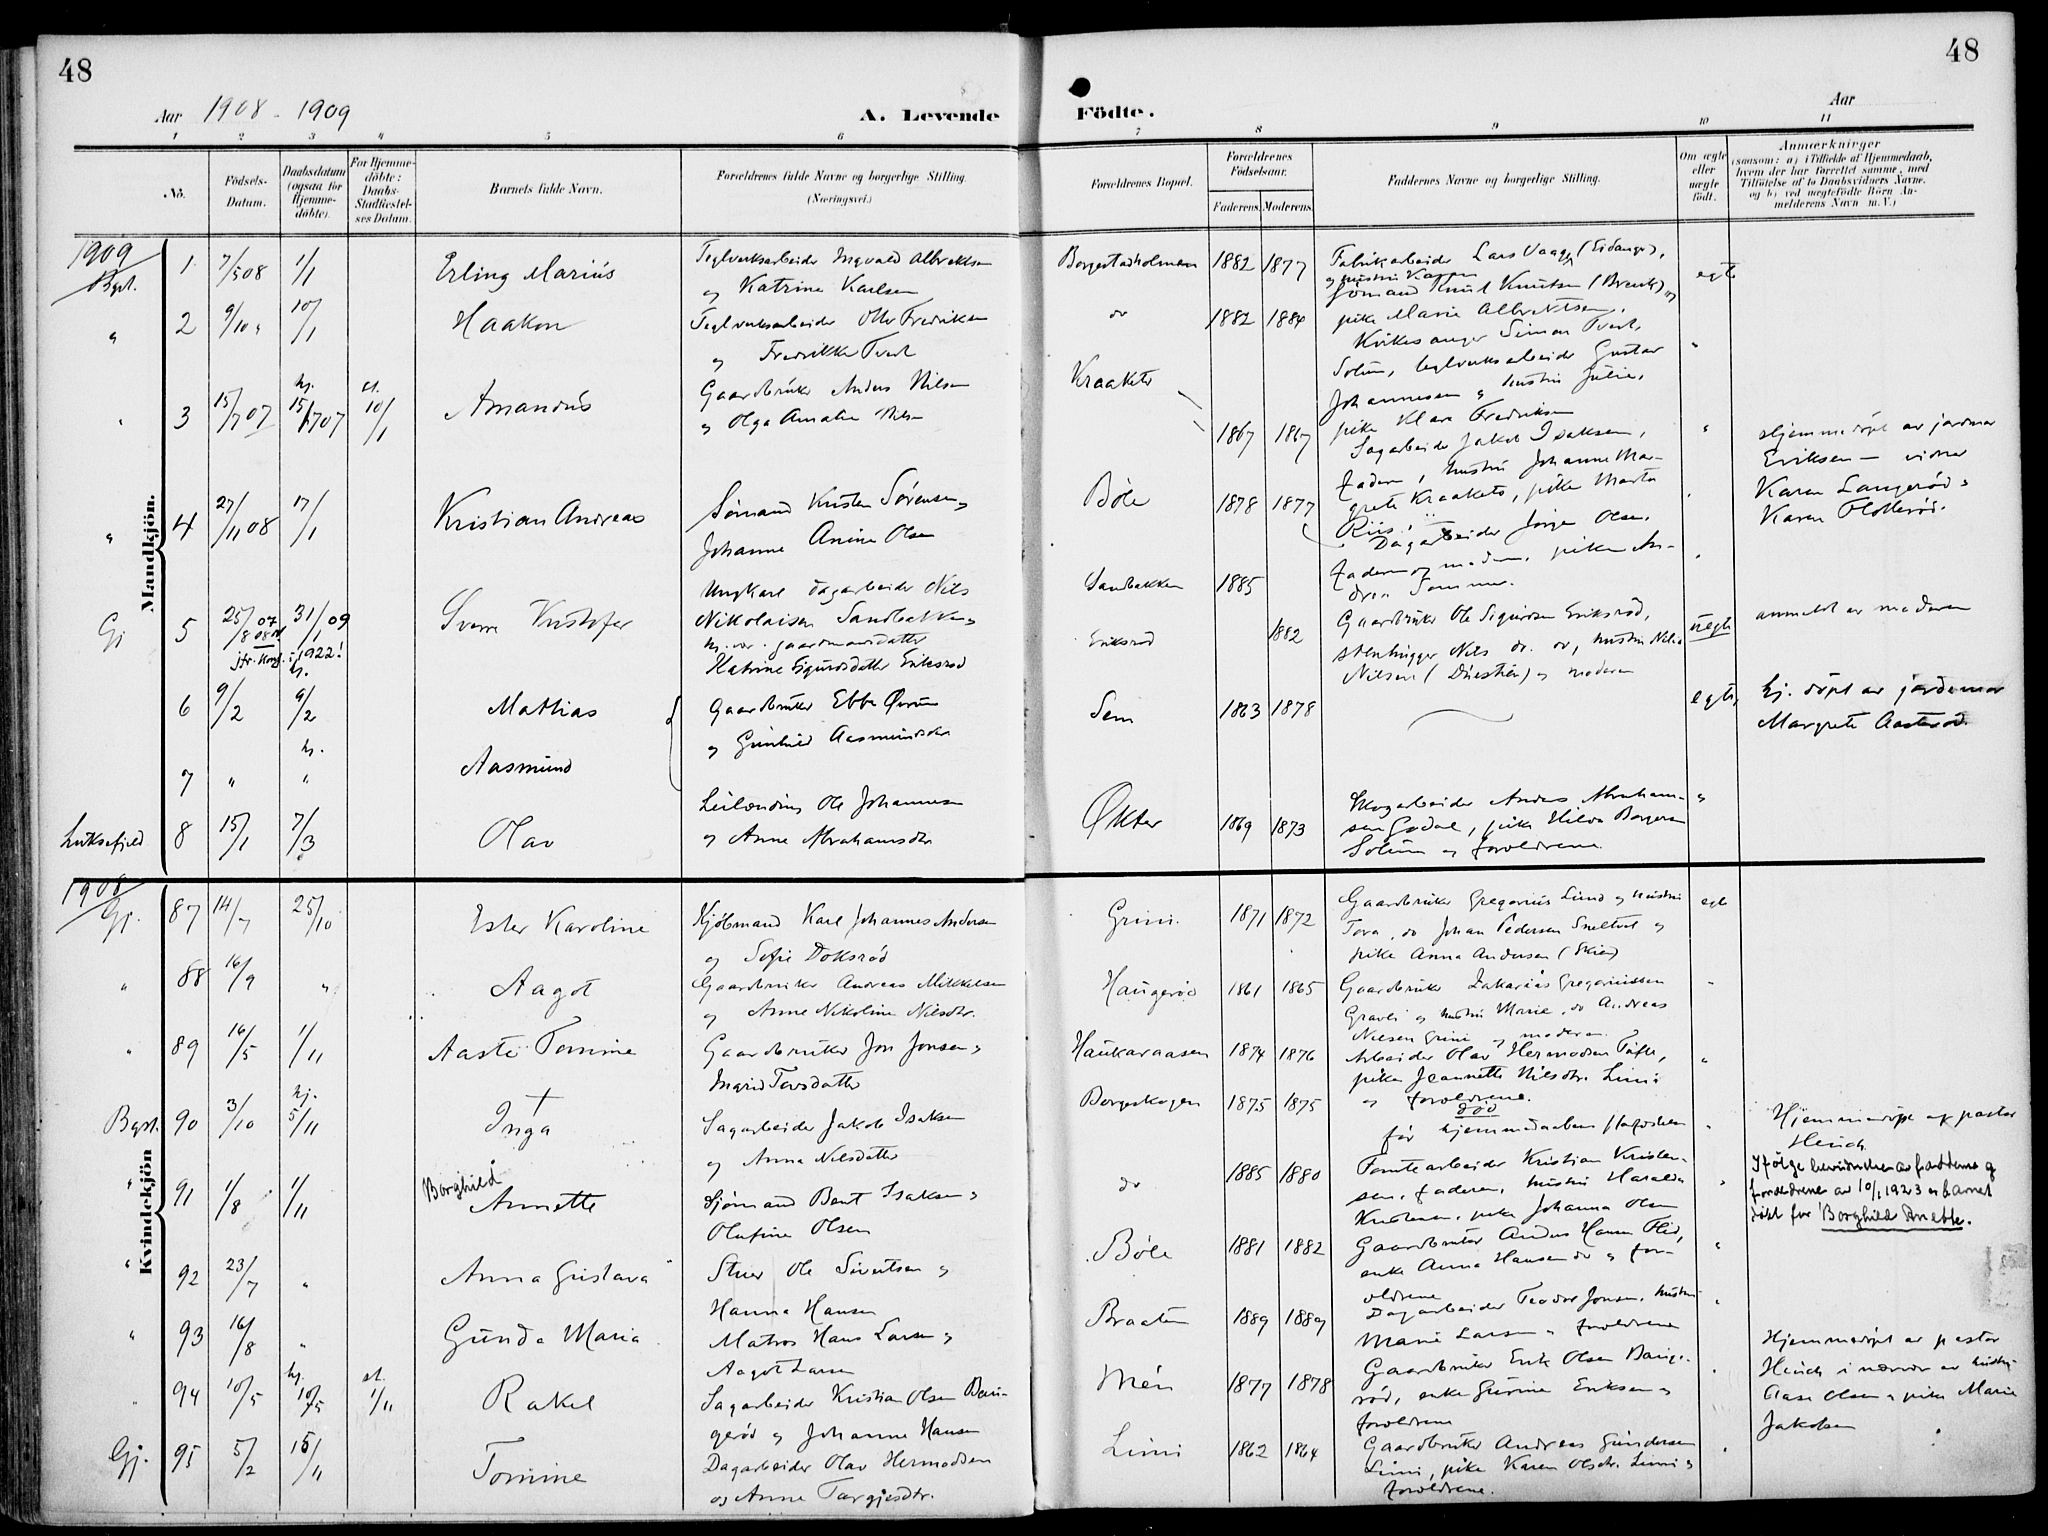 48
48
Aar 1908 - 1909
A. Levende
Födte.
Aar
1 2 3 4 5 6 7 8 9 10 11
No.
Födsels-
Datum.
Daabsdatum
(ogsaa for
Hjemme-
döbte).
For Hjemme-
döbte:
Daabs-
Stadfæstel-
ses Datum.
Barnets fulde Navn.
Forældrenes fulde Navne og borgerlige Stilling.
(Næringsvei.)
Forældrenes Bopæl.
Forældrenes
Födselsaar.
Faderens. Moderens.
Faddernes Navne og borgerlige Stilling.
Om ægte
eller
uægte
født.
Anmærkninger
(saasom: a) i Tilfælde af Hjemmedaab,
hvem der har forrettet samme, med
Tilföielse af to Daabsvidners Navne,
og b) ved uægtefödte Börn An-
melderens Navn m. V.)
Mandkjön.
1909
Bgst. 1 7/5 08 1/1 Erling Marius Teglverksarbeider Ingvald Albrektsen
og Katrine Karlsen
Borgestadholmen 1882 1877 Fabrikarbeider Lars Vaagø (Eidanger),
og hustru Karen
Sömand Knut Knutsen (Brevik) og
pike Marie Albrektsen, egte
" 2 9/10 " 10/1 Haakon Teglverksarbeider Otto Fredriksen
og Fredrikke Tvert
do 1882 1884 Simon Tvert,
Solum, teglverksarbeider Gustav
Johannesen og hustru Julie,
pike Klara Fredriksen "
" 3 15/7 07 hj. 15/7 07 st. 10/1 Amandus Gaardbruker Anders Nilsen
og Olga Amalie Nilsen
Kraaketo 1867 1867 Sagarbeider Jakob Isaksen,
faderen, hustru Johanne Mar-
grete Kraaketo, pike Marta
Riis. "
Hjemmedöpt av jordmor
Eriksen – vidner
Karen Langeröd &
Karen Flotteröd.
" 4 27/11 08 17/1 Kristian Andreas Sömand Kristen Sörensen og
Johanne Anine Olsen
Böle 1878 1877 Dagarbeider Jörgen Olsen,
faderen og moderen, piken An-
drea Sommer. "
Gj 5 25/8 07 08 31/1 09 Sverre Kristofer
jfr. Kong. i 1922!
Ungkarl dagarbeider Nils
Nikolaisen Sandbakken og
gaardmandsdatter
Katrine Sigurdsdatter Eriksröd
Sandbakken 1885
Eriksröd 1882
Gaardbruker Ole Sigurdsen Eriksröd,
stenhugger Nils do. do, hustru Nilia
Nilsen og moderen
uegte anmeldt av moderen
6 9/2 hj. 9/2 Mathias Gaardbruker Ebbe Örum
og Gunhild Aasmundsdtr
Sem 1863 1878 egte, hj. döpt av jordemor
Margrete Aasteröd.
7 " hj. " Aasmund
Luksefjeld 8 15/1 7/3 Olav Leilending Ole Johannesen
og Anne Abrahamsdtr
Økter 1869 1873 Skogarbeider Anders Abraham-
sen Godal, pike Hilda Borgersen
Solum og forældrene. "
Kvindekjön
1908
Gj. 87 14/7 25/10 Ester Karoline Kjöbmand Karl Johannes Andersen
og Sofie Doksröd
Grini. 1871 1872 Gaardbruker Gregorius Lund og hustru
Tora, do Johan Pedersen Sneltvet og
pike Anna Andersen (Skien) egte
" 88 16/9 " Aagot Gaardbruker Andreas Mikkelsen
og Anne Nikoline Nilsdtr.
Haugeröd 1861 1865 Gaardbruker Zakarias Gregoriussen
Gravli og hustru Marie, do Andreas
Nilsen Grini og moderen. "
" 89 16/5 1/11 Aaste Tomine Gaardbruker Jon Jonsen og
Ingrid Torsdatter
Haukaraasen 1874 1876 Arbeider Olav Hermodsen Tufte,
piken Jeanette Nilsdtr. Limi
og forældrene. "
Bgst. 90 3/10 hj. 5/11 † Inga Sagarbeider Jakob Isaksen
og Anna Nilsdatter
Borgeskogen 1875 1875 död
för hjemmedaabens stadfæstelse "
Hjemmedöpt af pastor
Heuch.
" 91 1/8 1/11 Borghild
Annette Sjömand Bent Isaksen og
Olufine Olsen
do 1885 1880 Tomtearbeider Kristian Kristen-
sen, faderen, hustru Haralda
Kristensen, pike Johanna Olsen "
Ifölge bevidnelse av fadderne og
forældrene av 10/1 1923 er barnet
döpt for Borghild Anette.
" 92 23/7 " Anna Gustava Stuer Ole Sivertsen og
Hanna Hansen
Böle 1881 1882 Gaardbruker Anders Hansen Flid,
enke Anna Hansen do og for-
ældrene "
" 93 16/8 " Gunda Maria Matros Hans Larsen og
Aagot Larsen
Braaten 1889 1889 Dagarbeider Teodor Jonsen, hustru
Marie Larsen og forældrene "
" 94 10/5 hj. 10/5 st. 1/11 Rakel Sagarbeider Kristian Olsen Baui-
geröd og Johanne Hansen
Mén 1877 1878 Gaardbruker Erik Olsen Bauge-
röd, enke Gurine Eriksen og
forældrene "
Hjemmedöpt av pastor
Heuch i nærvær av hustru
Aase Olsen og pike Marie
Jakobsen
Gj. 95 5/2 15/11 Tomine Dagarbeider Olav Hermodsen
og Anne Targjesdtr.
Limi 1862 1864 Gaardbruker Andreas Gundersen
Limi, pike Karen Olsdtr. Limi og
forældrene. "